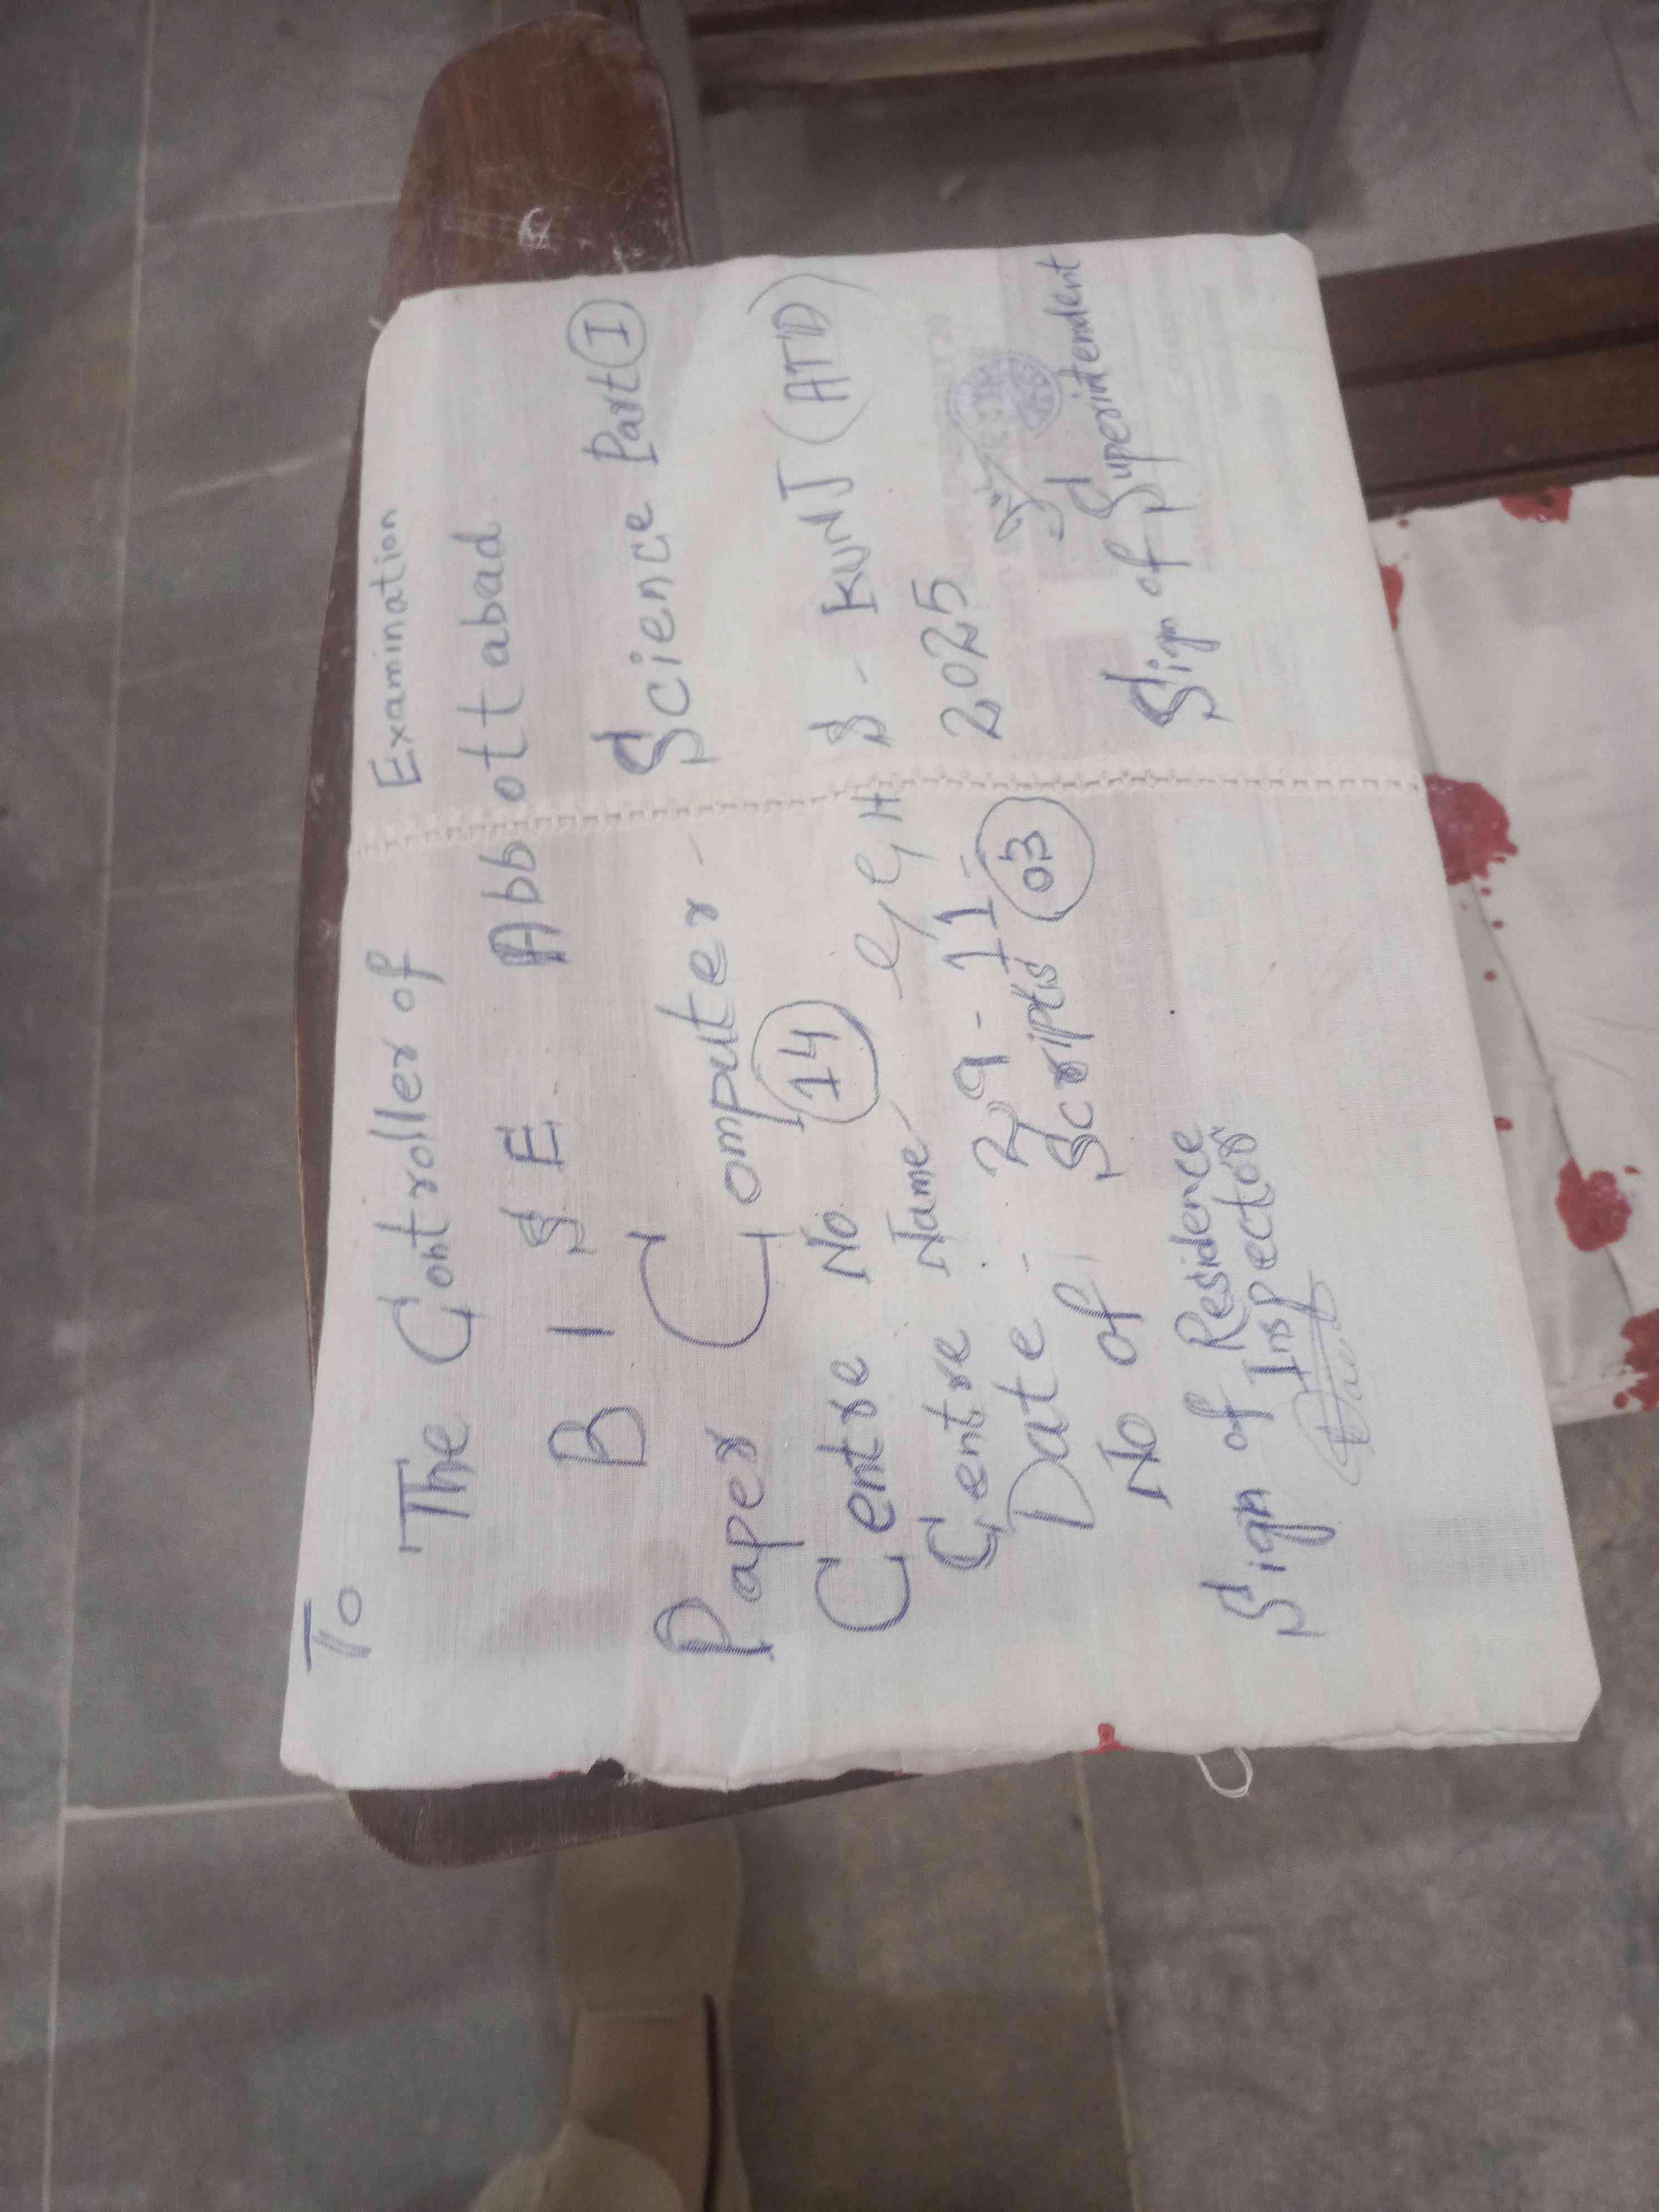 To
The Controller of Examination
B I S E Abbottabad
Paper Computer - Science Part I
Centre No 14
Centre Name - GGHS - KUNJ (ATD)
Date - 29-11-2025
No of Scripts 03
Sign of Superintendent
Sign of Residence
Inspector